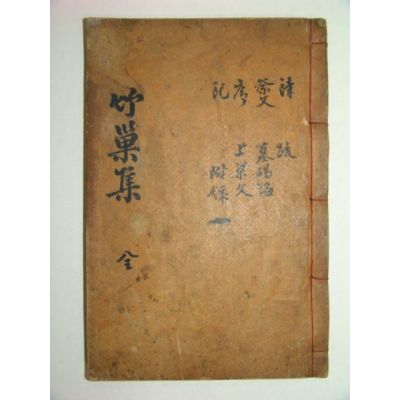 詩 跋
祭文 墓碣銘
序 上梁文
記 附錄
竹巢集 全